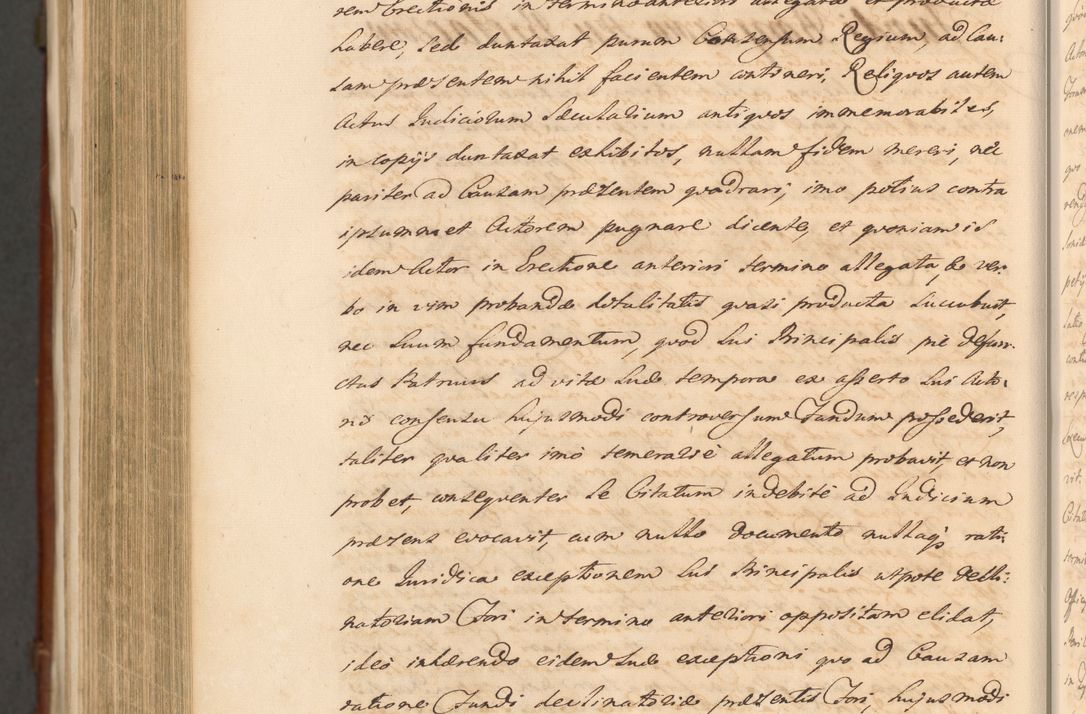 rem Erectionis in termino anteriori allegata et producta
habere, sed duntaxat purum Consensum Regium, ad Cau:
sam præsentem nihil facientem contineri, Reliquos autem
Actus Judiciorum Sæcularium antiquos immemorabiles,
in copijs duntaxat exhibitos, nullam fidem mereri, nec
pariter ad Causam præsentem quadrari; imo potius contra
ipsummet Actorem pugnare dicente, et quoniam is
idem Actor in Erectione anteriori termino allegata, eo ver:
bo in vim probandæ totalitatis quasi producta succubuit,
nec suum fundamentum, quod sui Principalis piè defun:
ctus Patruus ad vitæ suæ tempora ex asserto sui Acto:
ris consensu hujusmodi controversum Fundum possederit,
taliter qualiter imò temerariè allegatum probavit, et non
probet, consequenter se Citatum indebitè ad Judicium
præsens evocavit, cum nullo documento nullaq3 rati:
one Juridica exceptionem sui Principalis utpote decli:
natoriam Fori in termino anteriori oppositam elidat,
ideo inhærendo eidem suæ exceptioni quo ad Causam
ratione Fundi declinatoriæ præsentis Fori, hujusmodi